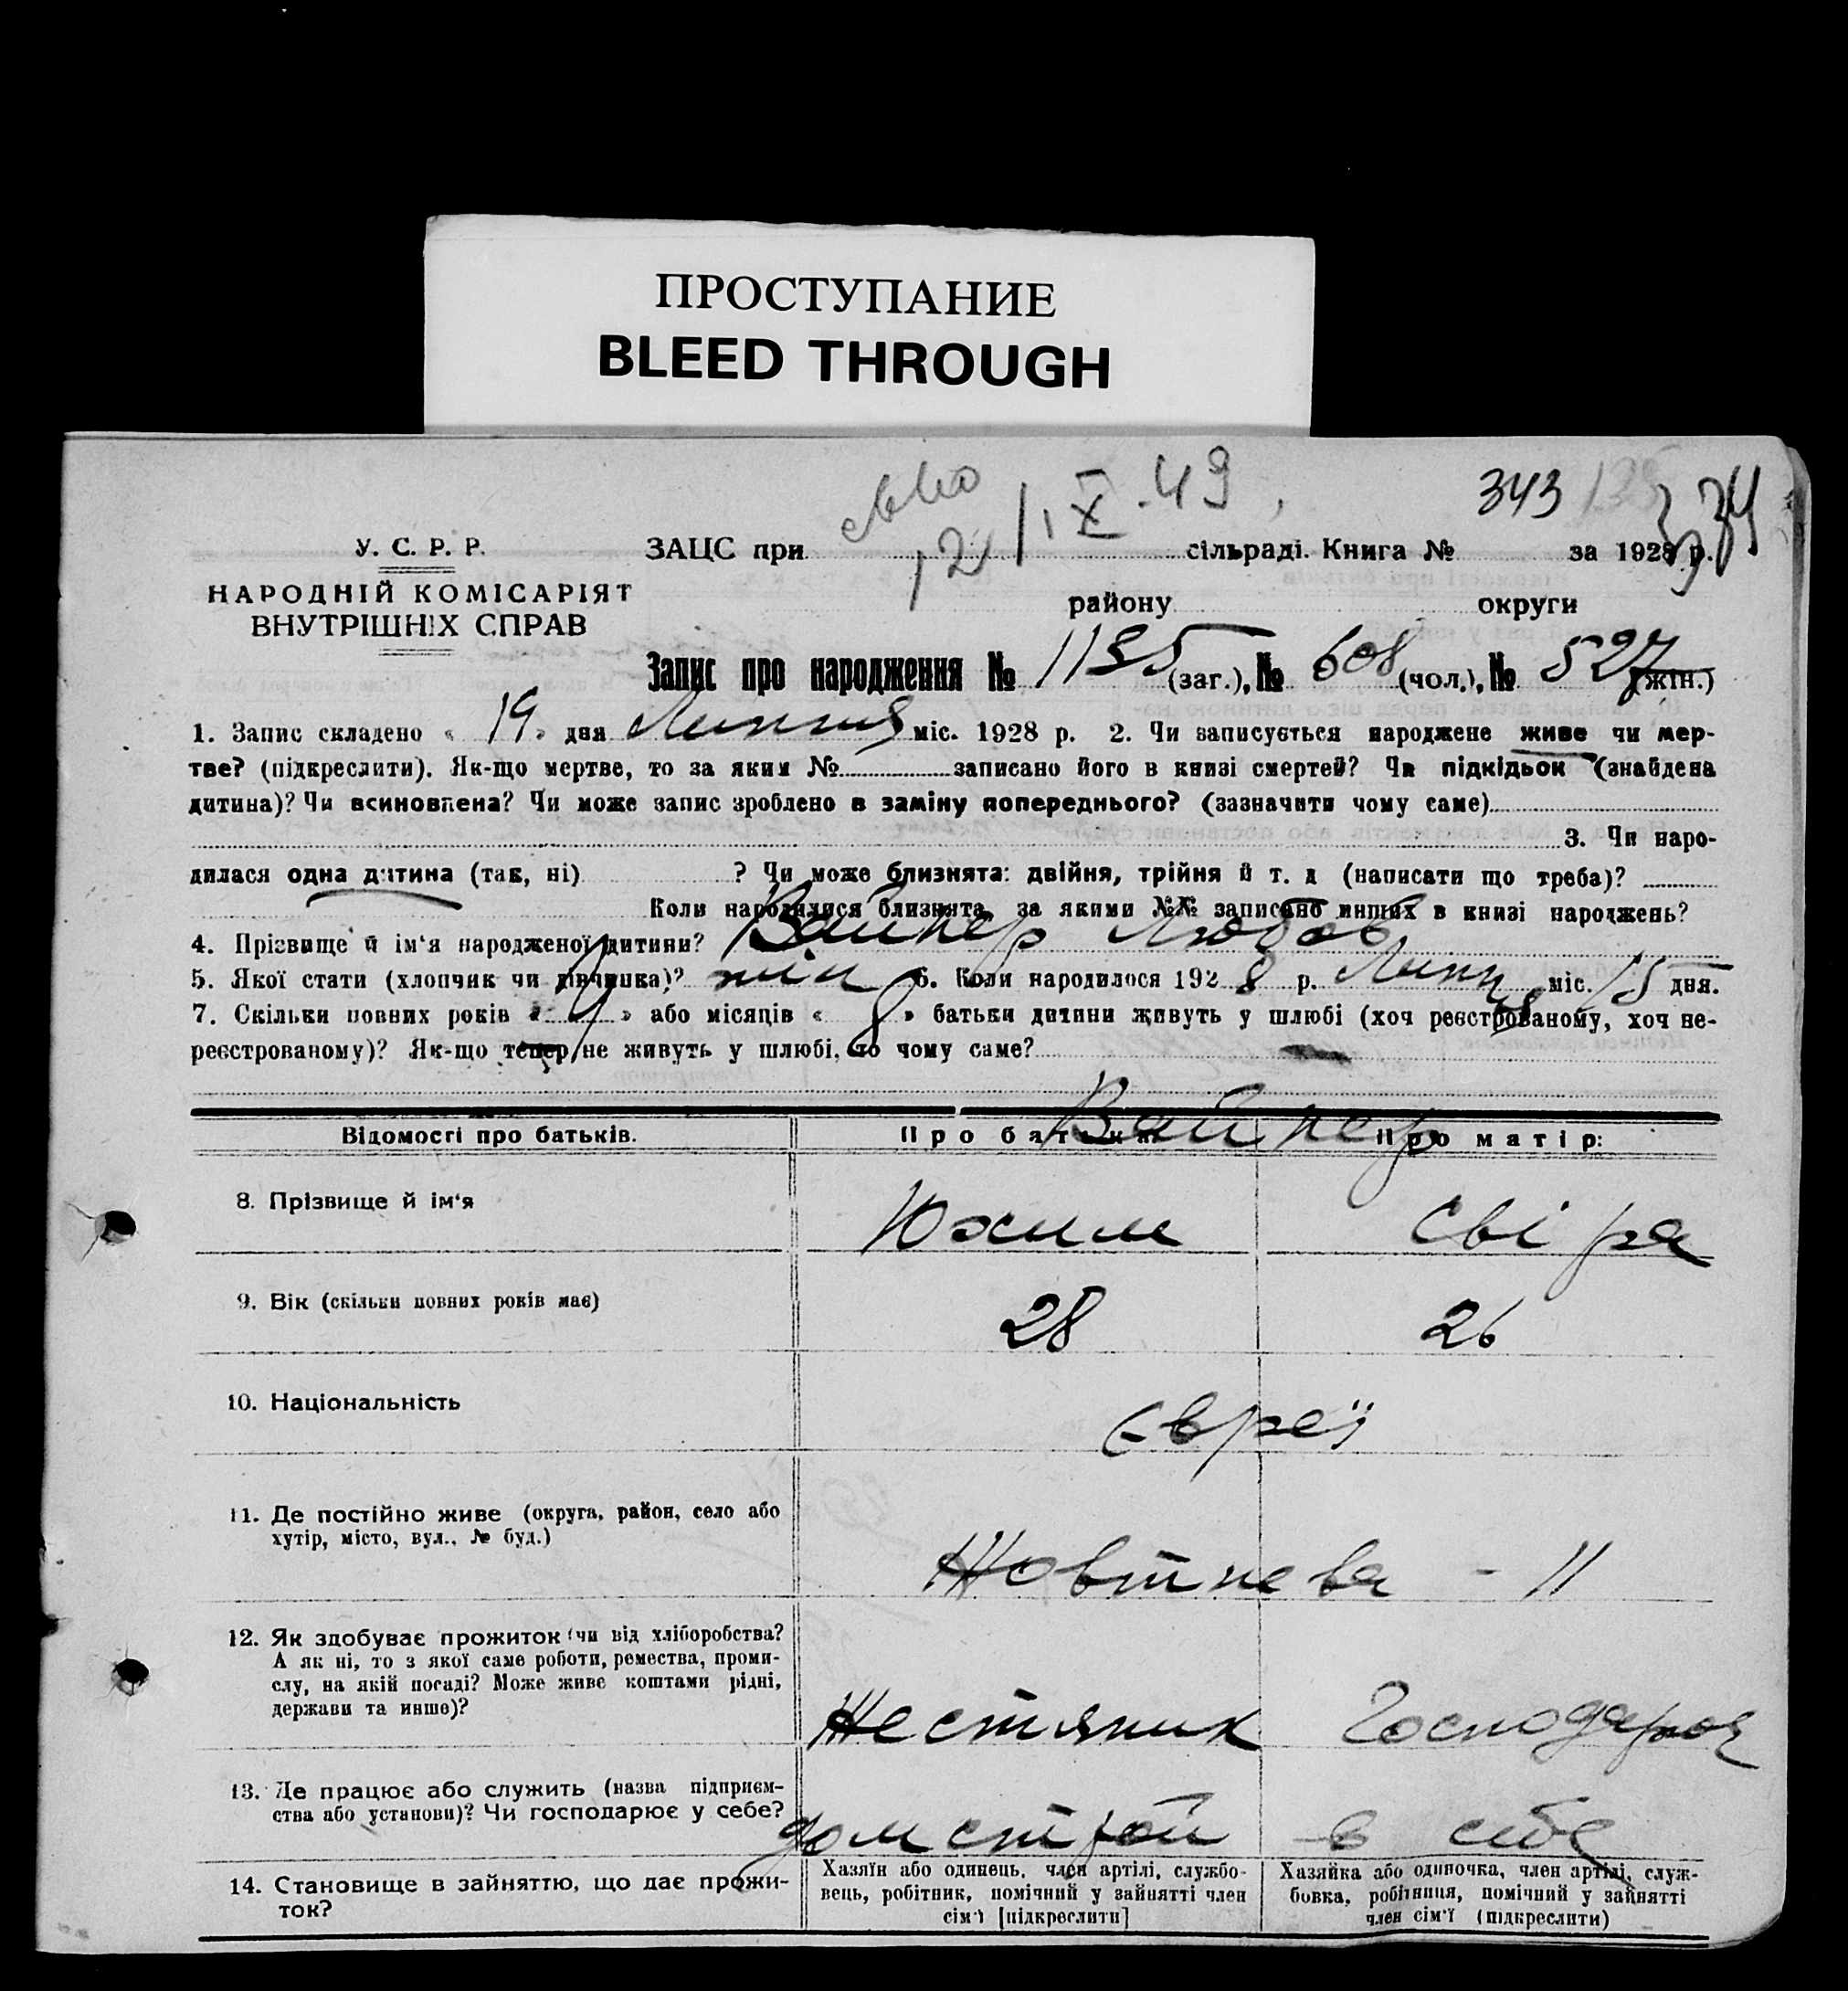 ПРОСТУПАНИЕ
BLEED THROUGH
12/IX-49
343
У. С. Р. Р.
ЗАЦС при сільраді. Книга № за 1928 р.
НАРОДНІЙ КОМІСАРІЯТ
ВНУТРІШНІХ СПРАВ
району округи
Запис про народження № 1135 (заг.), № 608 (чол.), № 527 (жін.)
1. Запис складено « 19 » дня Липня міс. 1928 р. 2. Чи записується народжене живе чи мер-
тве? (підкреслити). Як-що мертве, то за яким № записано його в книзі смертей? Чи підкідьок (знайдена
дитина)? Чи всиновлена? Чи може запис зроблено в заміну попереднього? (зазначити чому саме)
3. Чи наро-
дилася одна дитина (так, ні) ? Чи може близнята: двійня, трійня й т. д (написати що треба)?
Коли народилися близнята, за якими №№ записано инших в книзі народжень?
4. Прізвище й ім'я народженої дитини? Вайнер Любов
5. Якої стати (хлопчик чи дівчинка)? жін 6. Коли народилося 1928 р. Липня міс. 15 дня.
7. Скільки повних років « » або місяців « » батьки дитини живуть у шлюбі (хоч реєстрованому, хоч не-
реєстрованому)? Як-що тепер не живуть у шлюбі, то чому саме? —
Вайнер
Відомості про батьків. Про батька: Про матір:
8. Прізвище й ім'я Юхим Свіра
9. Вік (скільки повних років має) 28 26
10. Національність Євреї
11. Де постійно живе (округа, район, село або
хутір, місто, вул., № буд.)
Жовтнева - 11
12. Як здобуває прожиток (чи від хліборобства?
А як ні, то з якої саме роботи, ремества, проми-
слу, на якій посаді? Може живе коштами рідні,
держави та инше)?
Жестяник Господарює
13. Де працює або служить (назва підприєм-
ства або установи)? Чи господарює у себе?
Домстрой в себе
14. Становище в зайняттю, що дає прожи-
ток?
Хазяїн або одинець, член артілі, службо-
вець, робітник, помічний у зайнятті член
сім'ї [підкреслити]
Хазяйка або одиночка, член артілі, служ-
бовка, робітниця, помічний у зайнятті
член сім'ї (підкреслити)